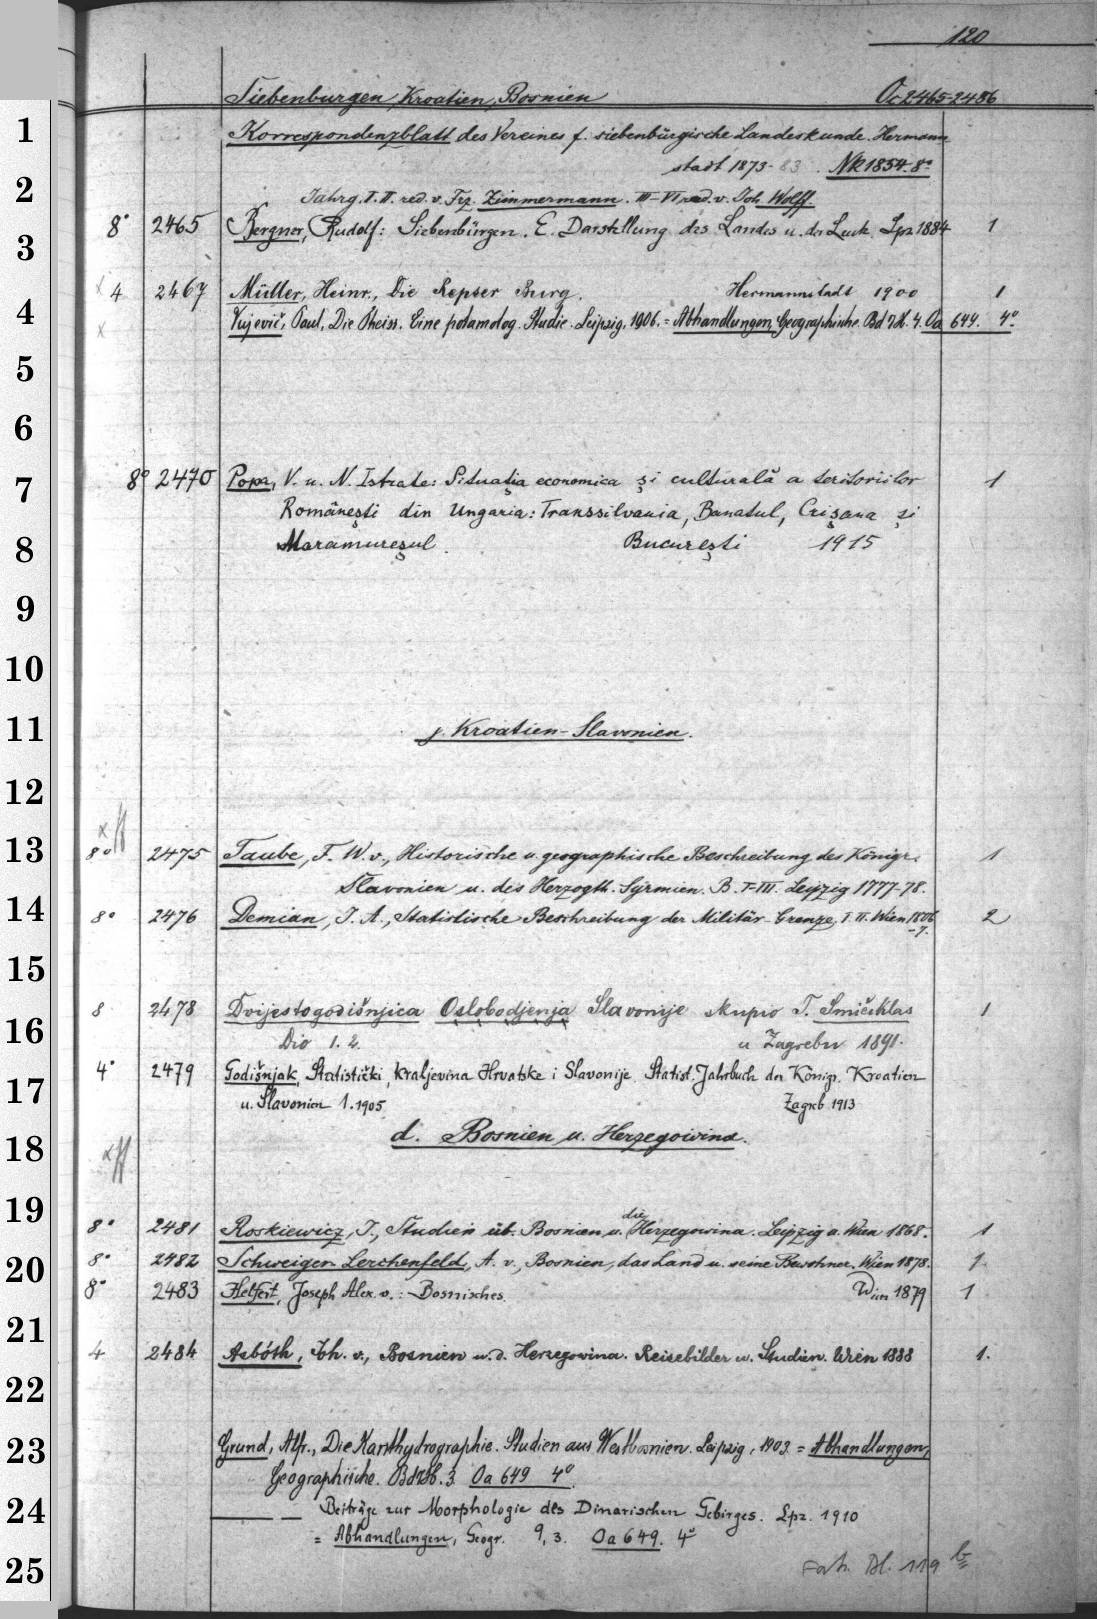 120
Siebenbürgen, Kroatien, Bosnien Oc 2465-2486
1 Korrespondenzblatt des Vereines f. siebenbürgische Landeskunde. Hermann
stadt 1873-83. NR 1854. 8°
2 Jahrg. I. II. red. v. Frz. Zimmermann. III-VI red. v. Joh. Wolff
8° 2465 Bergner, Rudolf: Siebenbürgen. E. Darstellung des Landes u. der Leute. Lpz. 1884 1
3
x 4 2467 Müller, Heinr., Die Repser Burg. Hermannstadt 1900 1
4 x Vujević, Paul, Die Theiss. Eine potamolog. Studie. Leipzig, 1906. = Abhandlungen, Geographische. Bd 7. H. 4. Oa 649. 4°
5
6
7 8° 2470 Popa, V. u. N. Istrate: Situaţia economica şi culturală a teritoriilor 1
Româneşti din Ungaria: Transsilvania, Banatul, Crişana şi
8 Maramureşul. Bucureşti 1915
9
10
11 j. Kroatien-Slavonien.
12
x
13 8° 2475 Taube, F. W. v., Historische u. geographische Beschreibung des Königr. 1
Slavonien u. des Herzogth. Syrmien. B. I-III. Leipzig 1777-78.
14 8° 2476 Demian, J. A., Statistische Beschreibung der Militär-Grenze, I. II. Wien 1806 2
-7.
15
8 2478 Dvijestogodišnjica Oslobodjenja Slavonije skupio T. Smičiklas 1
16 Dio 1. 2. u Zagrebu 1891.
4° 2479 Godišnjak, Statistički, kraljevina Hrvatske i Slavonije. Statist. Jahrbuch der Königr. Kroatien
17 u. Slavonien 1. 1905 Zagreb 1913
d. Bosnien u. Herzegowina.
18 x
19
die
8° 2481 Roskiewicz, J., Studien üb. Bosnien u. Herzegowina. Leipzig u. Wien 1868. 1
20 8° 2482 Schweiger-Lerchenfeld, A. v., Bosnien, das Land u. seine Bewohner. Wien 1878. 1.
8° 2483 Helfert, Joseph Alex. v.: Bosnisches. Wien 1879 1
21
4 2484 Asbóth, Joh. v., Bosnien u. d. Herzegowina. Reisebilder u. Studien. Wien 1888 1.
22
23 Grund, Alfr., Die Karsthydrographie. Studien aus Westbosnien. Leipzig, 1903. = Abhandlungen,
Geographische. Bd 7. H. 3. Oa 649 4°
24 — — Beiträge zur Morphologie des Dinarischen Gebirges. Lpz. 1910
= Abhandlungen, Geogr. 9, 3. Oa 649. 4°
25 Bl. 119 b